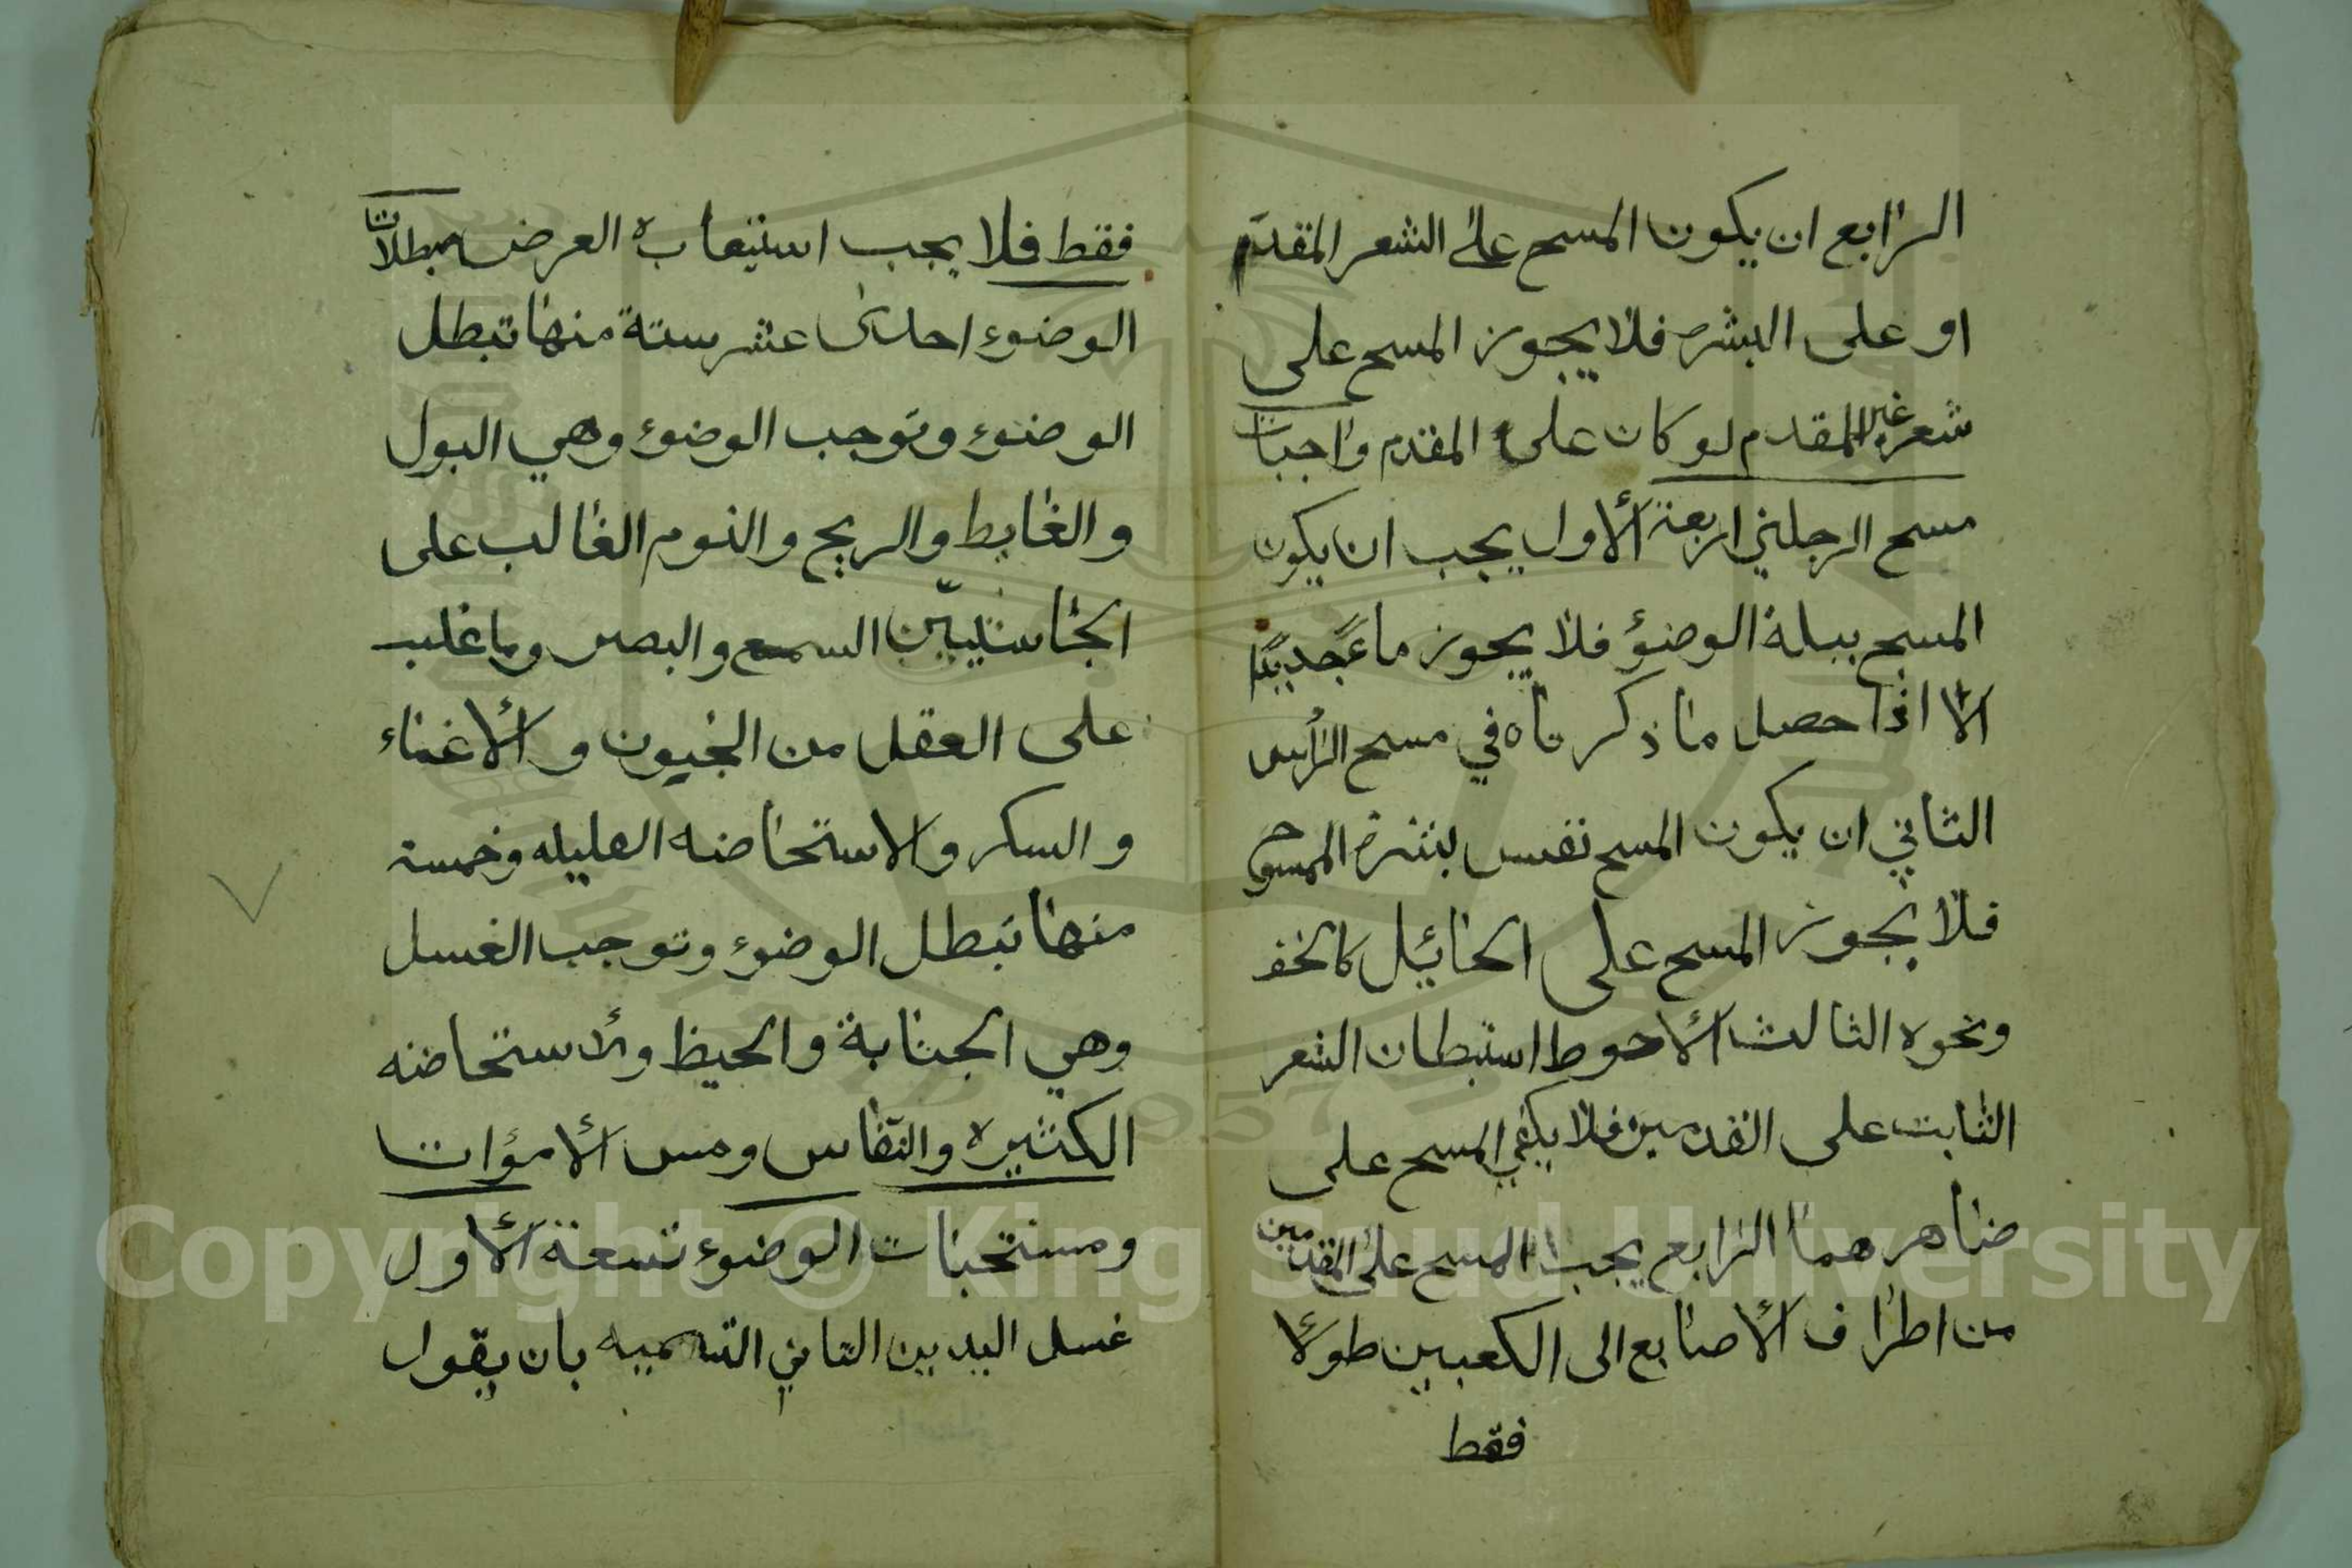 الرابع ان يكون المسح على الشعر المقدم
او على البشره فلا يجوز المسح على
شعر غير المقدم لو كان على المقدم واجبات
مسح الرجلين اربعة الأول يجب ان يكون
المسح ببلة الوضوء فلا يجوز ماءً جديدًا
الا اذا حصل ما ذكرناه في مسح الرأس
الثاني ان يكون المسح نفس بشرة الممسوح
فلا يجوز المسح على الحائيل كالخف
ونحوه الثالث الأحوط استبطان الشعر
الثابت على القدمين فلا يكفي المسح على
ضاهرهما الرابع يجب المسح على القدمين
من اطراف الأصابع الى الكعبين طولا
فقط
فقط فلا يجب استيعابه العرض مبطلات
الوضوء احدى عشر ستة منها تبطل
الوضوء وتوجب الوضوء وهي البول
والغايط والريح والنوم الغالب على
السمع والبصر وما غلب
على العقل من الجنون والأغماء
والسكر والاستحاضه القليله وخمسة
منها تبطل الوضوء وتوجب الغسل
وهي الجنابة والحيظ والاستحاضه
الكثيره والنفاس ومس الأموات
ومستحبات الوضوء تسعة الأول
غسل اليدين الثاني التسمييه بان يقول
Copyright © King Saud University
1957